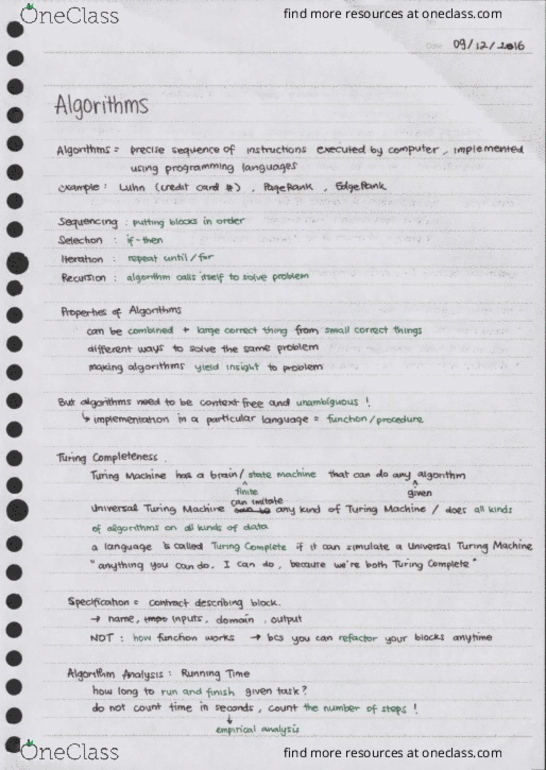 OneClass
find more resources at oneclass.com
09/12/2016
Algorithms
Algorithms = precise sequence of instructions executed by computer, implemented
using programming languages
example: Luhn (credit card #), PageRank, EdgeRank
Sequencing : putting blocks in order
Selection : if-then
Iteration : repeat until/for
Recursion : algorithm calls itself to solve problem
Properties of Algorithms
can be combined + large correct thing from small correct things
different ways to solve the same problem
making algorithms yield insight to problem
But algorithms need to be context free and unambiguous !
↳ implementation in a particular language = function/procedure
Turing Completeness
Turing Machine has a brain/ state machine that can do any algorithm
finite given
can imitate
Universal Turing Machine any kind of Turing Machine / does all kinds
of algorithms on all kinds of data
a language is called Turing Complete if it can simulate a Universal Turing Machine
"anything you can do, I can do, because we're both Turing Complete"
Specification = contract describing block.
→ name, inputs, domain, output
NOT : how function works → bcs you can refactor your blocks anytime
Algorithm Analysis : Running Time
how long to run and finish given task?
do not count time in seconds, count the number of steps !
↓
empirical analysis
OneClass
find more resources at oneclass.com